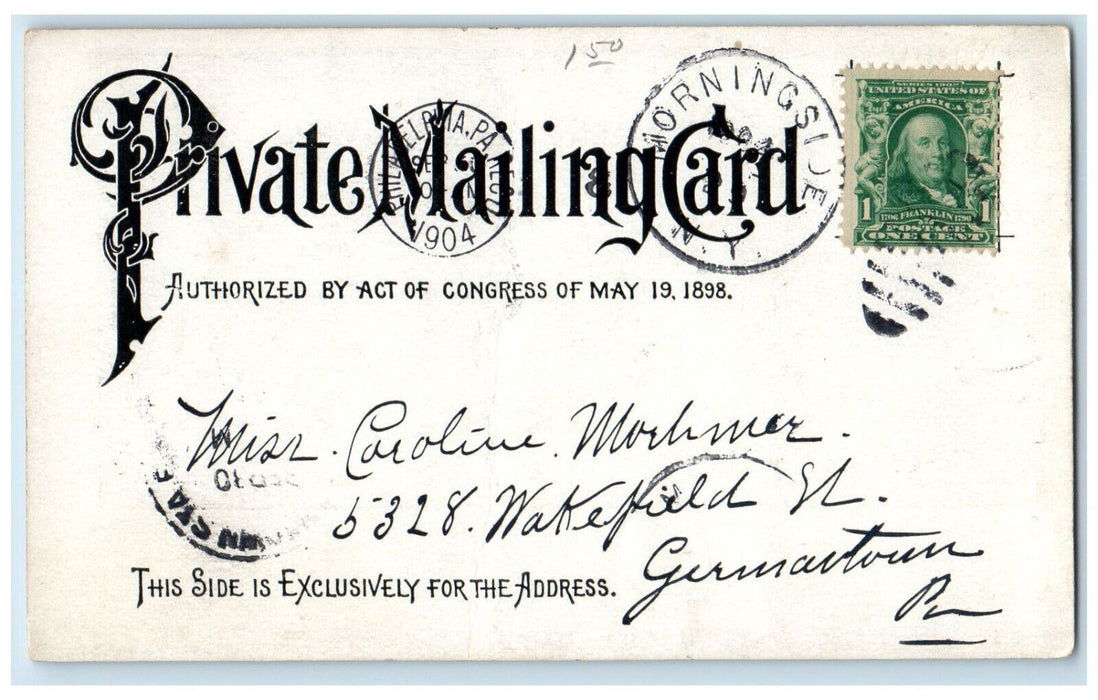 150
Private Mailing Card
AUTHORIZED BY ACT OF CONGRESS OF MAY 19, 1898.
PHILADELPHIA, PA. REC'D
1904
MORNINGSIDE
N.Y.
SERIES 1902
UNITED STATES OF
AMERICA
1 1
1706 FRANKLIN 1790
POSTAGE
ONE CENT
Miss. Caroline Mortimer.
5328. Wakefield St.
Germantown
Pa
THIS SIDE IS EXCLUSIVELY FOR THE ADDRESS.